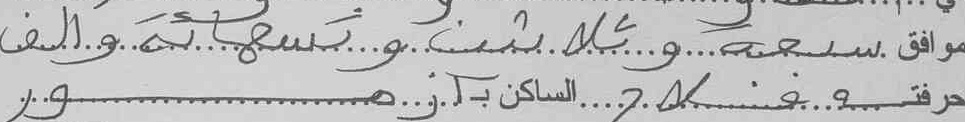 موافق سبعة و ثلاثين و تسعمائة والف
حرفته فلاح الساكن بـ آزمور